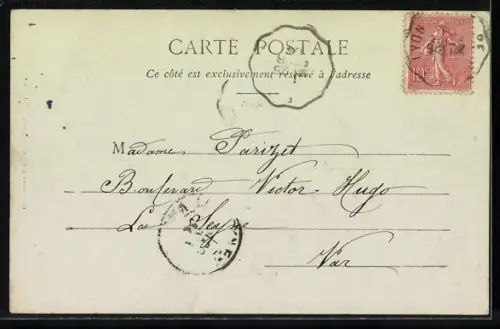 CARTE POSTALE
Ce côté est exclusivement réservé à l'adresse
10
Madame Parizet
Boulevard Victor-Hugo
La Seyne
Var